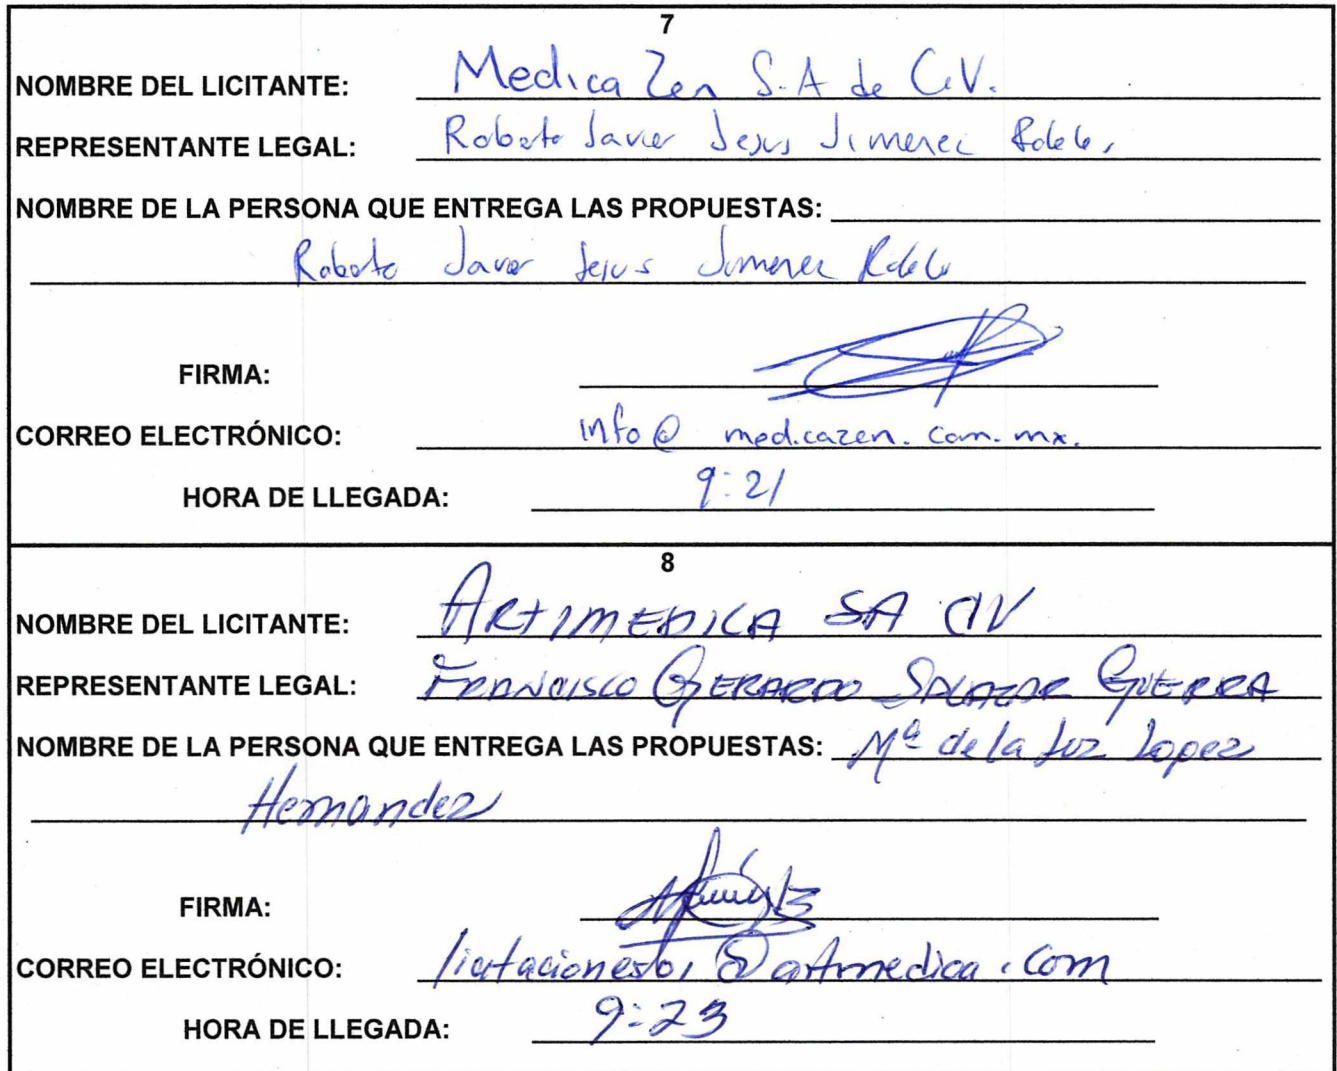 7
NOMBRE DEL LICITANTE: Medica Zen S.A de C.V.
REPRESENTANTE LEGAL: Roberto Javier Jesus Jimenez
NOMBRE DE LA PERSONA QUE ENTREGA LAS PROPUESTAS:
Roberto Javier Jesus Jimenez
FIRMA:
CORREO ELECTRÓNICO: info@medicazen.com.mx.
HORA DE LLEGADA: 9:21
8
NOMBRE DEL LICITANTE: ARTIMEDICA SA CV
REPRESENTANTE LEGAL: FRANCISCO GERARDO SALAZAR GUERRA
NOMBRE DE LA PERSONA QUE ENTREGA LAS PROPUESTAS: Mª de la Luz Lopez
Hernandez
FIRMA:
CORREO ELECTRÓNICO:
HORA DE LLEGADA: 9:23